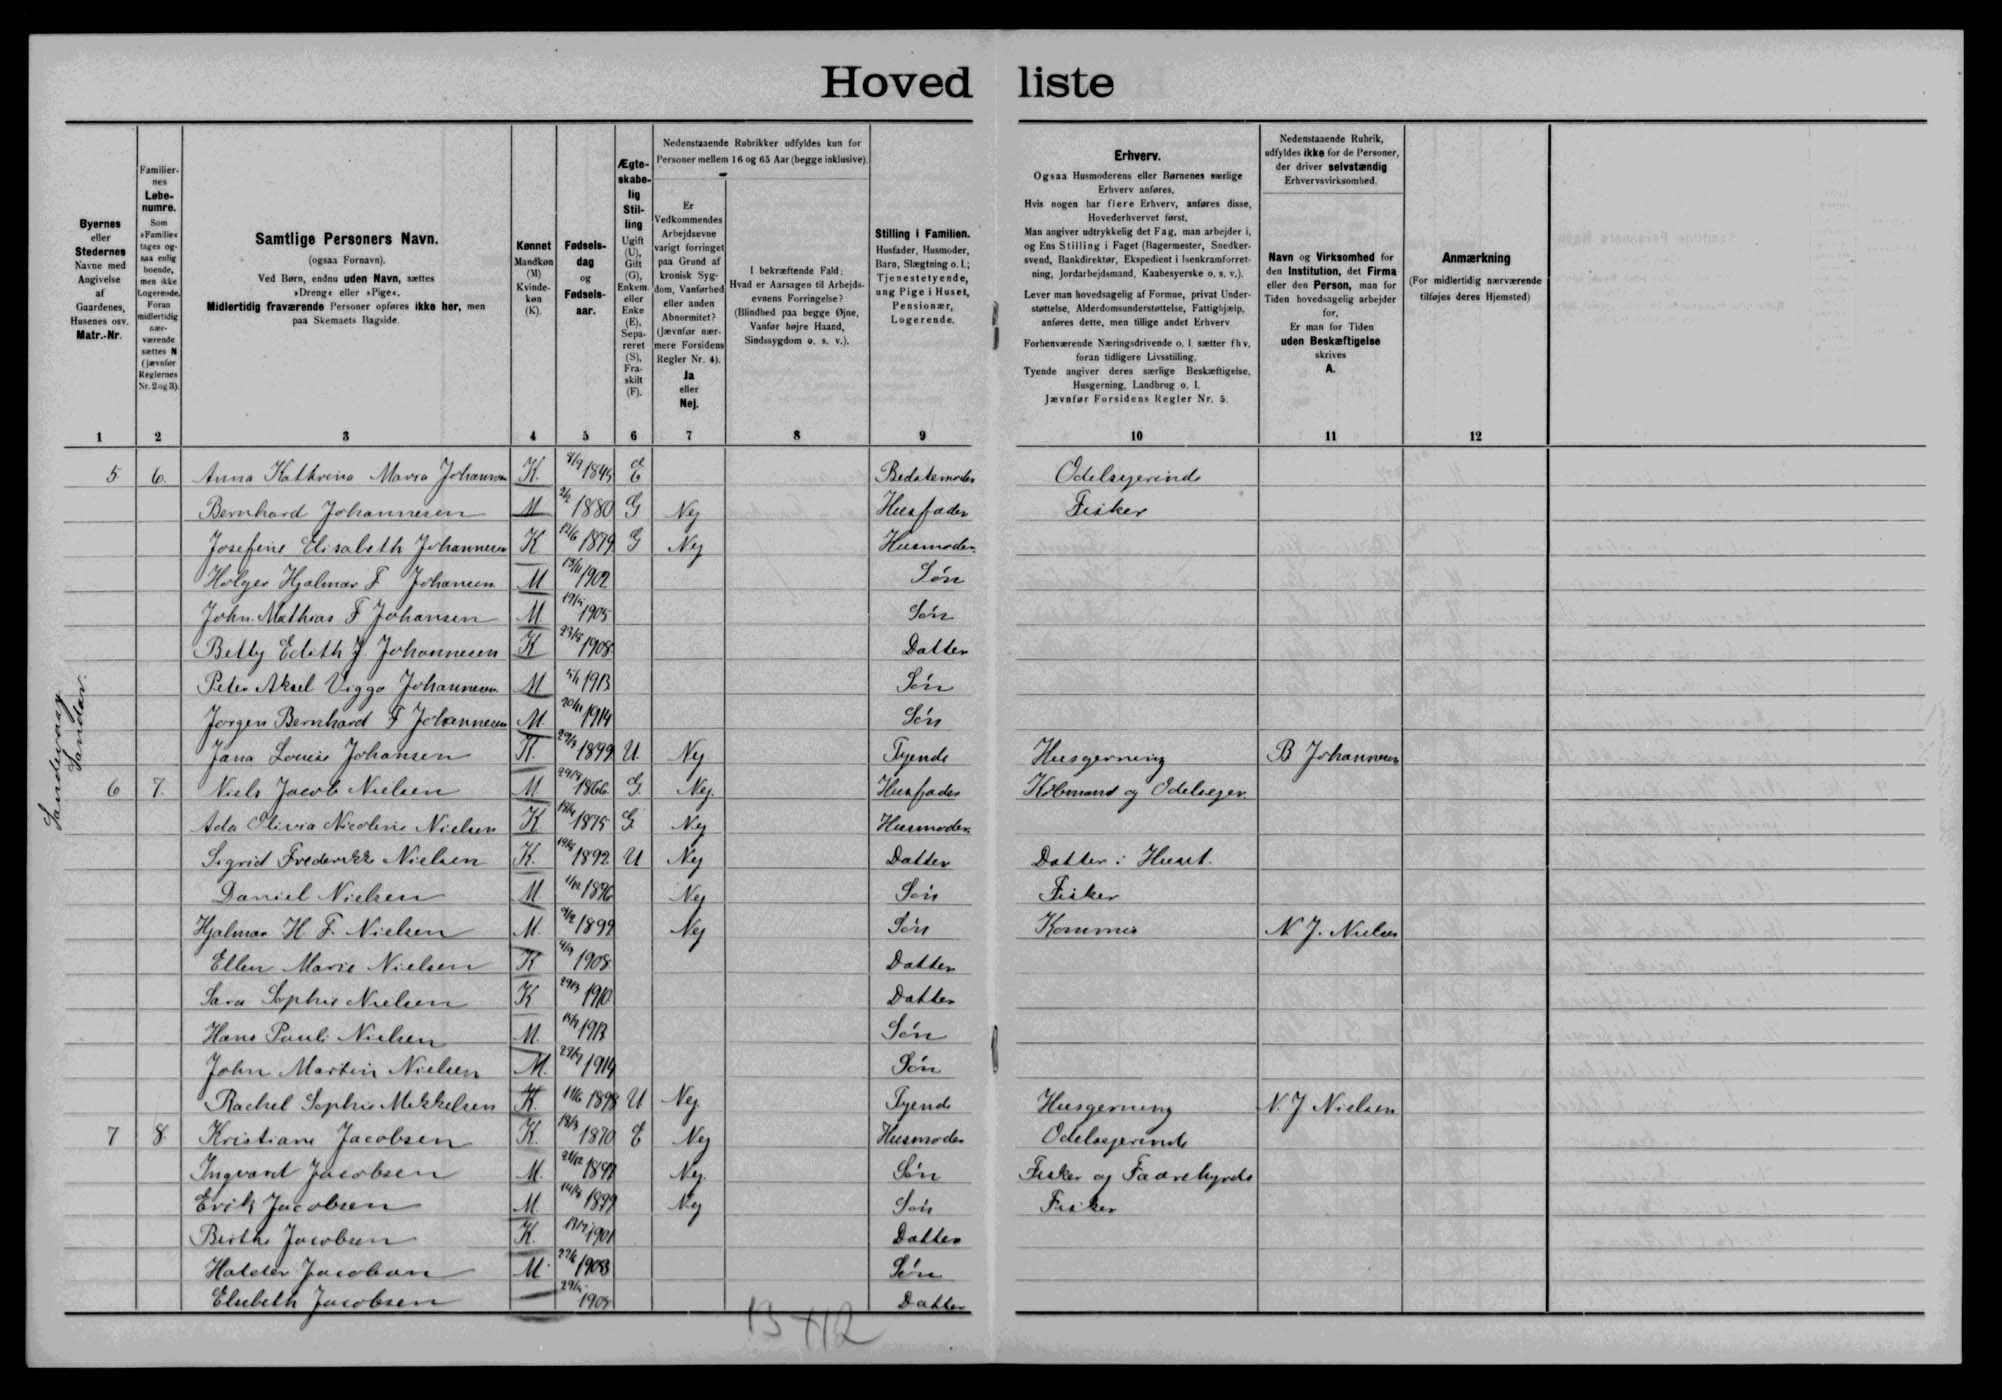 Hoved liste
Byernes
eller
Stedernes
Navne med
Angivelse
af
Gaardenes,
Husenes osv.
Matr.-Nr.
Familier-
nes
Løbe-
numre.
Som
»Familie«
tages og-
saa enlig
boende,
men ikke
Logerende.
Foran
midlertidig
nær-
værende
sættes N
(jævnfør
Reglernes
Nr. 2 og 3).
Samtlige Personers Navn.
(ogsaa Fornavn).
Ved Børn, endnu uden Navn, sættes
»Dreng« eller »Pige«.
Midlertidig fraværende Personer opføres ikke her, men
paa Skemaets Bagside.
Kønnet
Mandkøn
(M)
Kvinde-
køn
(K).
Fødsels-
dag
og
Fødsels-
aar.
Ægte-
skabe-
lig
Stil-
ling
Ugift
(U),
Gift
(G),
Enkem.
eller
Enke
(E),
Sepa-
reret
(S),
Fra-
skilt
(F).
Nedenstaaende Rubrikker udfyldes kun for
Personer mellem 16 og 65 Aar (begge inklusive).
Er
Vedkommendes
Arbejdsevne
varigt forringet
paa Grund af
kronisk Syg-
dom, Vanførhed
eller anden
Abnormitet?
(Jævnfør nær-
mere Forsidens
Regler Nr. 4).
Ja
eller
Nej.
I bekræftende Fald;
Hvad er Aarsagen til Arbejds-
evnens Forringelse?
(Blindhed paa begge Øjne,
Vanfør højre Haand,
Sindssygdom o. s. v.).
Stilling i Familien.
Husfader, Husmoder,
Barn, Slægtning o. l.;
Tjenestetyende,
ung Pige i Huset,
Pensionær,
Logerende.
Erhverv.
Ogsaa Husmoderens eller Børnenes særlige
Erhverv anføres.
Hvis nogen har flere Erhverv, anføres disse,
Hovederhvervet først.
Man angiver udtrykkelig det Fag, man arbejder i,
og Ens Stilling i Faget (Bagermester, Snedker-
svend, Bankdirektør, Ekspedient i Isenkramforret-
ning, Jordarbejdsmand, Kaabesyerske o. s. v.).
Lever man hovedsagelig af Formue, privat Under-
støttelse, Alderdomsunderstøttelse, Fattighjælp,
anføres dette, men tillige andet Erhverv
Forhenværende Næringsdrivende o. l. sætter fhv.
foran tidligere Livsstilling.
Tyende angiver deres særlige Beskæftigelse,
Husgerning, Landbrug o. l.
Jævnfør Forsidens Regler Nr. 5.
Nedenstaaende Rubrik,
udfyldes ikke for de Personer,
der driver selvstændig
Erhvervsvirksomhed.
Navn og Virksomhed for
den Institution, det Firma
eller den Person, man for
Tiden hovedsagelig arbejder
for.
Er man for Tiden
uden Beskæftigelse
skrives
A.
Anmærkning
(For midlertidig nærværende
tilføjes deres Hjemsted)
1 2 3 4 5 6 7 8 9 10 11 12
Sandevaag
5 6. Anna Kathrina Maria Johannesen K. 1845 E Bedstemoder Odelsejerinde
Bernhard Johannesen M 2/2 1880 G Nej Husfader Fisker
Josefine Elisabeth Johannesen K 1879 G Nej Husmoder.
Holger Hjalmar F Johansen M 1902 Søn
John Mathias F Johansen M. 1905 Søn
Betty Edith J. Johannesen K 1908 Datter
Peter Aksel Viggo Johannesen M 1913 Søn
Jørgen Bernhard F Johannesen M. 1914 Søn
Jana Louise Johansen K. 1899 U. Nej Tyende Husgerning B Johannesen
6 7. Niels Jacob Nielsen M 1866 G. Nej. Husfader Købmand og Odelsejer.
Ada Olivia Nicoline Nielsen K 1875 G. Nej Husmoder.
Sigrid Frederikke Nielsen K. 1892 U Nej Datter Datter i Huset.
Daniel Nielsen M 1896 Nej Søn Fisker
Hjalmar H. F. Nielsen M. 1899 Nej Søn Kommis N J. Nielsen
Ellen Marie Nielsen K 1908 Datter
Sara Sophie Nielsen K 1910 Datter
Hans Pauli Nielsen M. 1913 Søn
John Martin Nielsen M. 1914 Søn
Rachel Sophie Mikkelsen K. 1898 U Nej Tyende Husgerning N. J Nielsen
7 8. Kristiane Jacobsen K. 1870 E Nej Husmoder Odelsejerinde
Ingvard Jacobsen M. Nej. Søn Fisker og Faarehyrde
Erik Jacobsen M 1899 Nej Søn Fisker
Birthe Jacobsen K. 1901 Datter
Jacobsen M. 1903 Søn
Elsebeth Jacobsen 1905 Datter
13 + 12